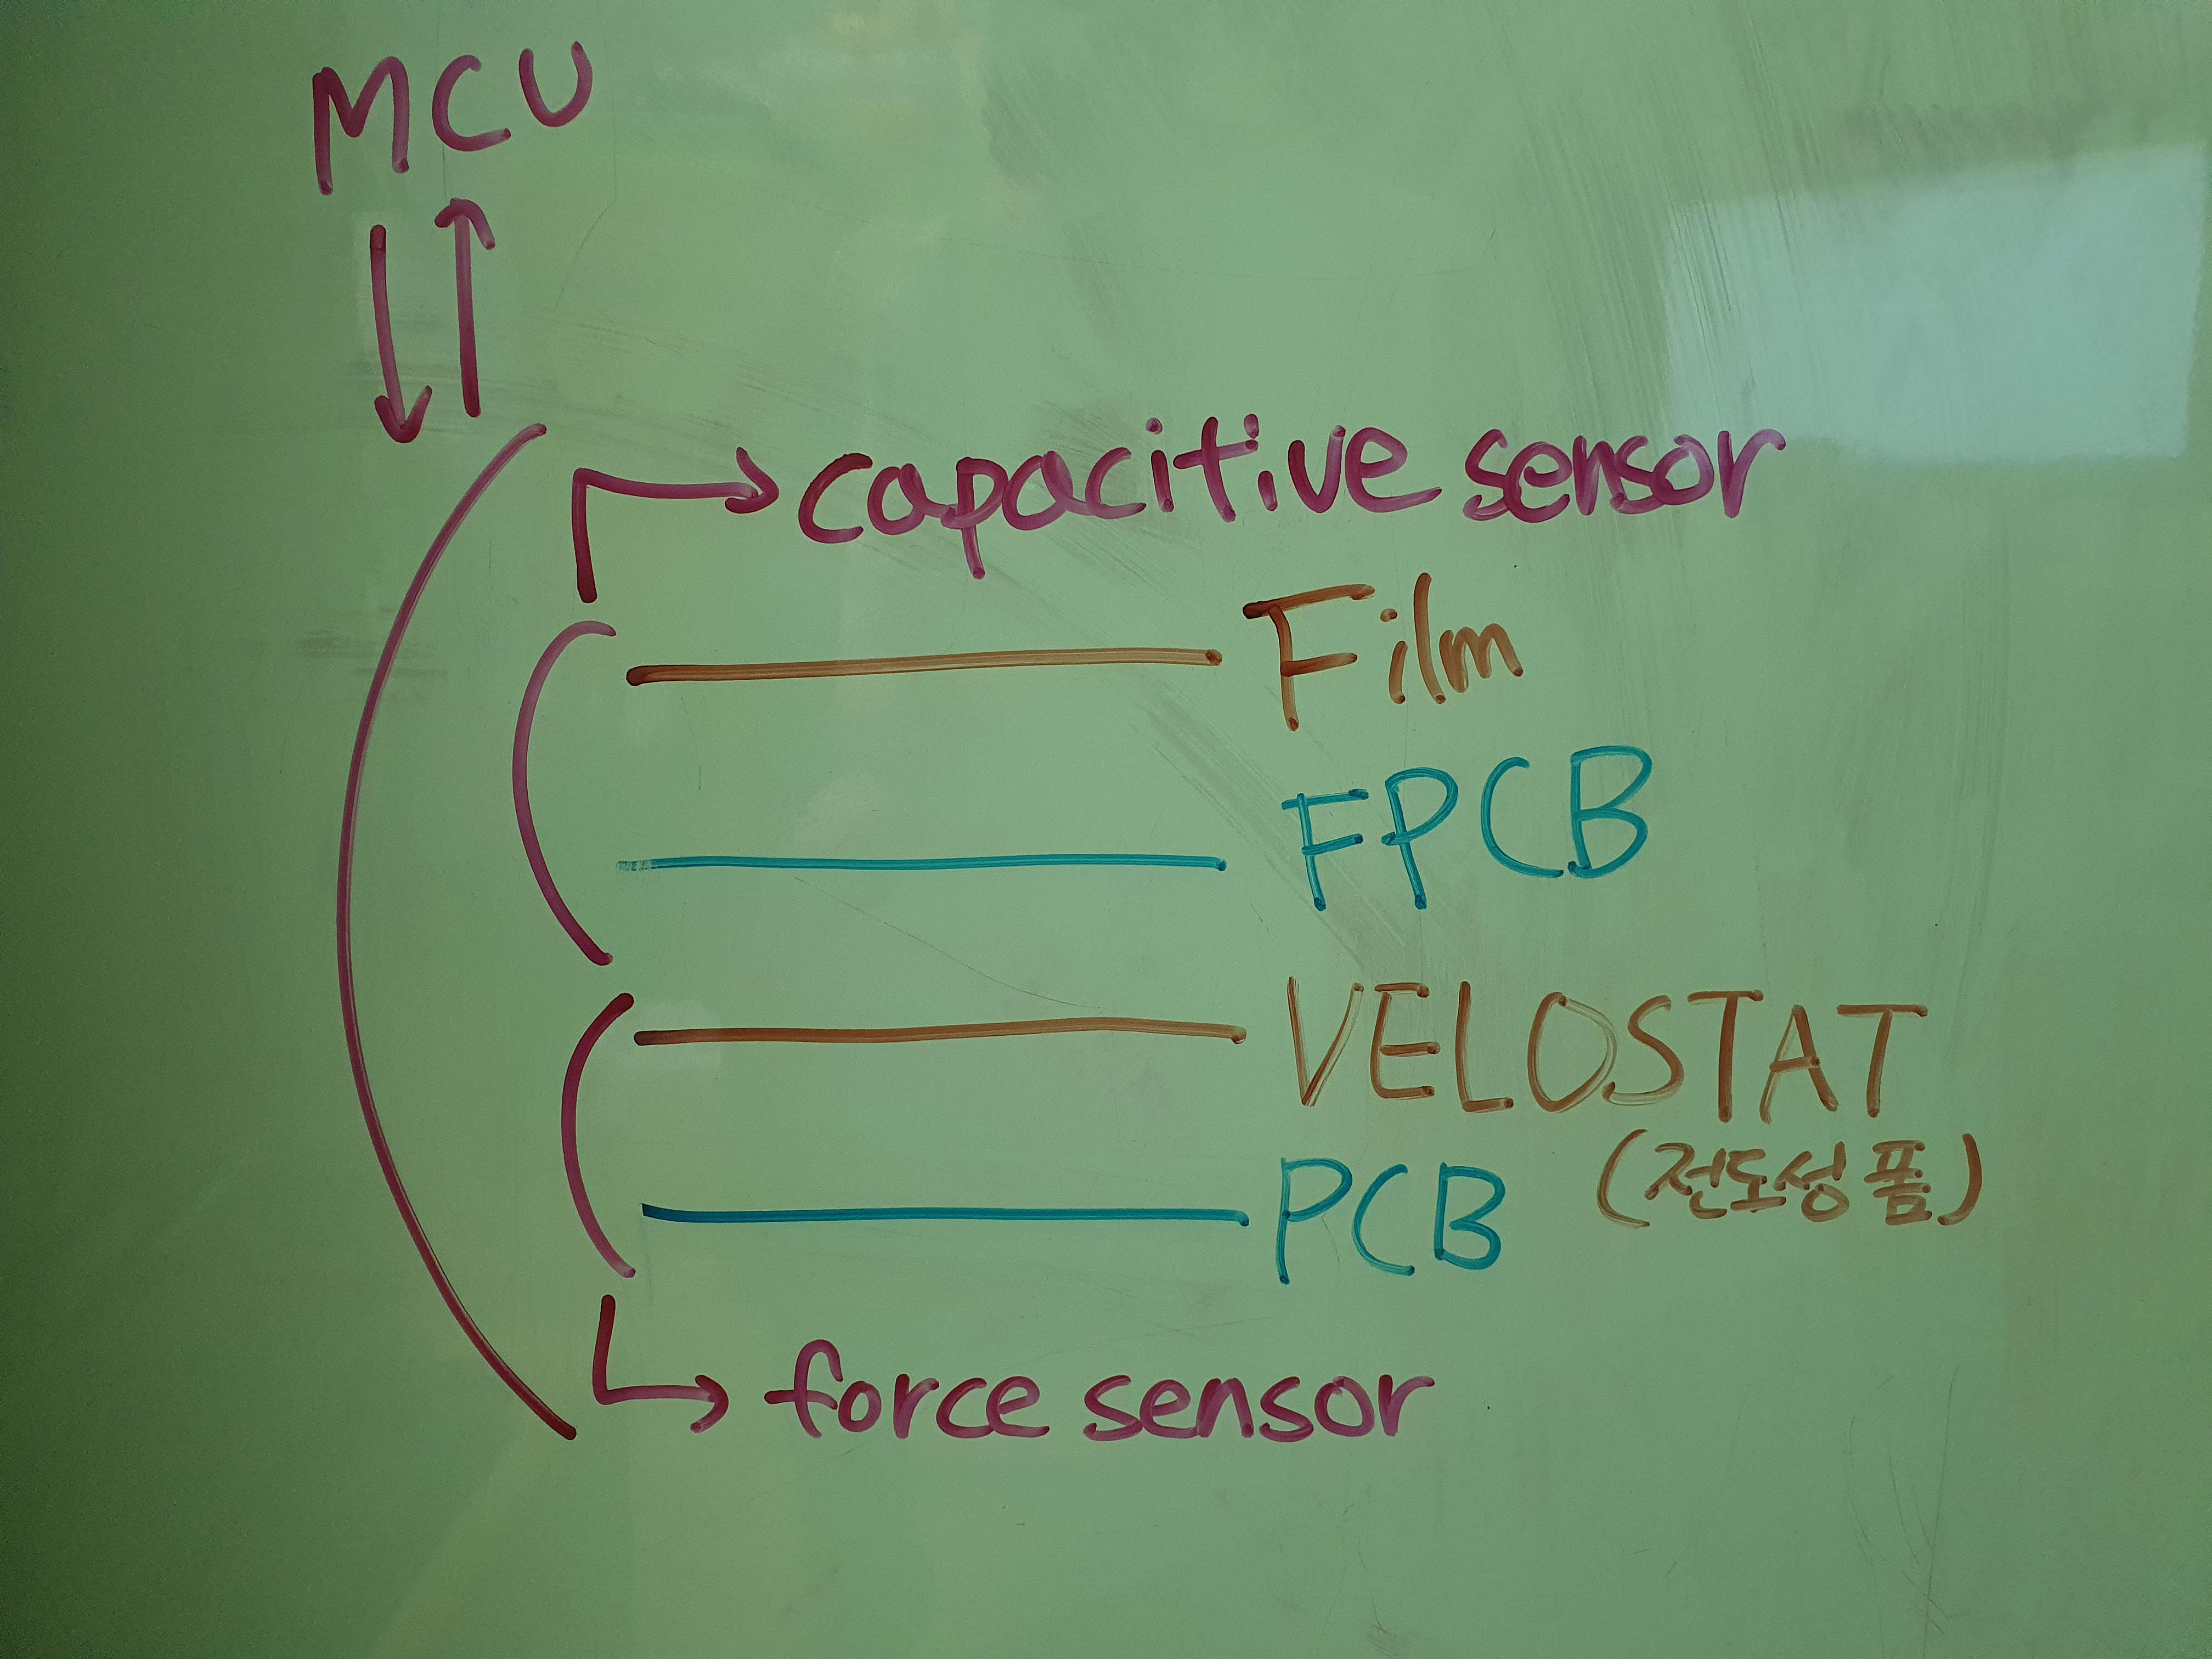 MCU
capacitive sensor
Film
FPCB
VELOSTAT
(전도성 폼)
PCB
force sensor